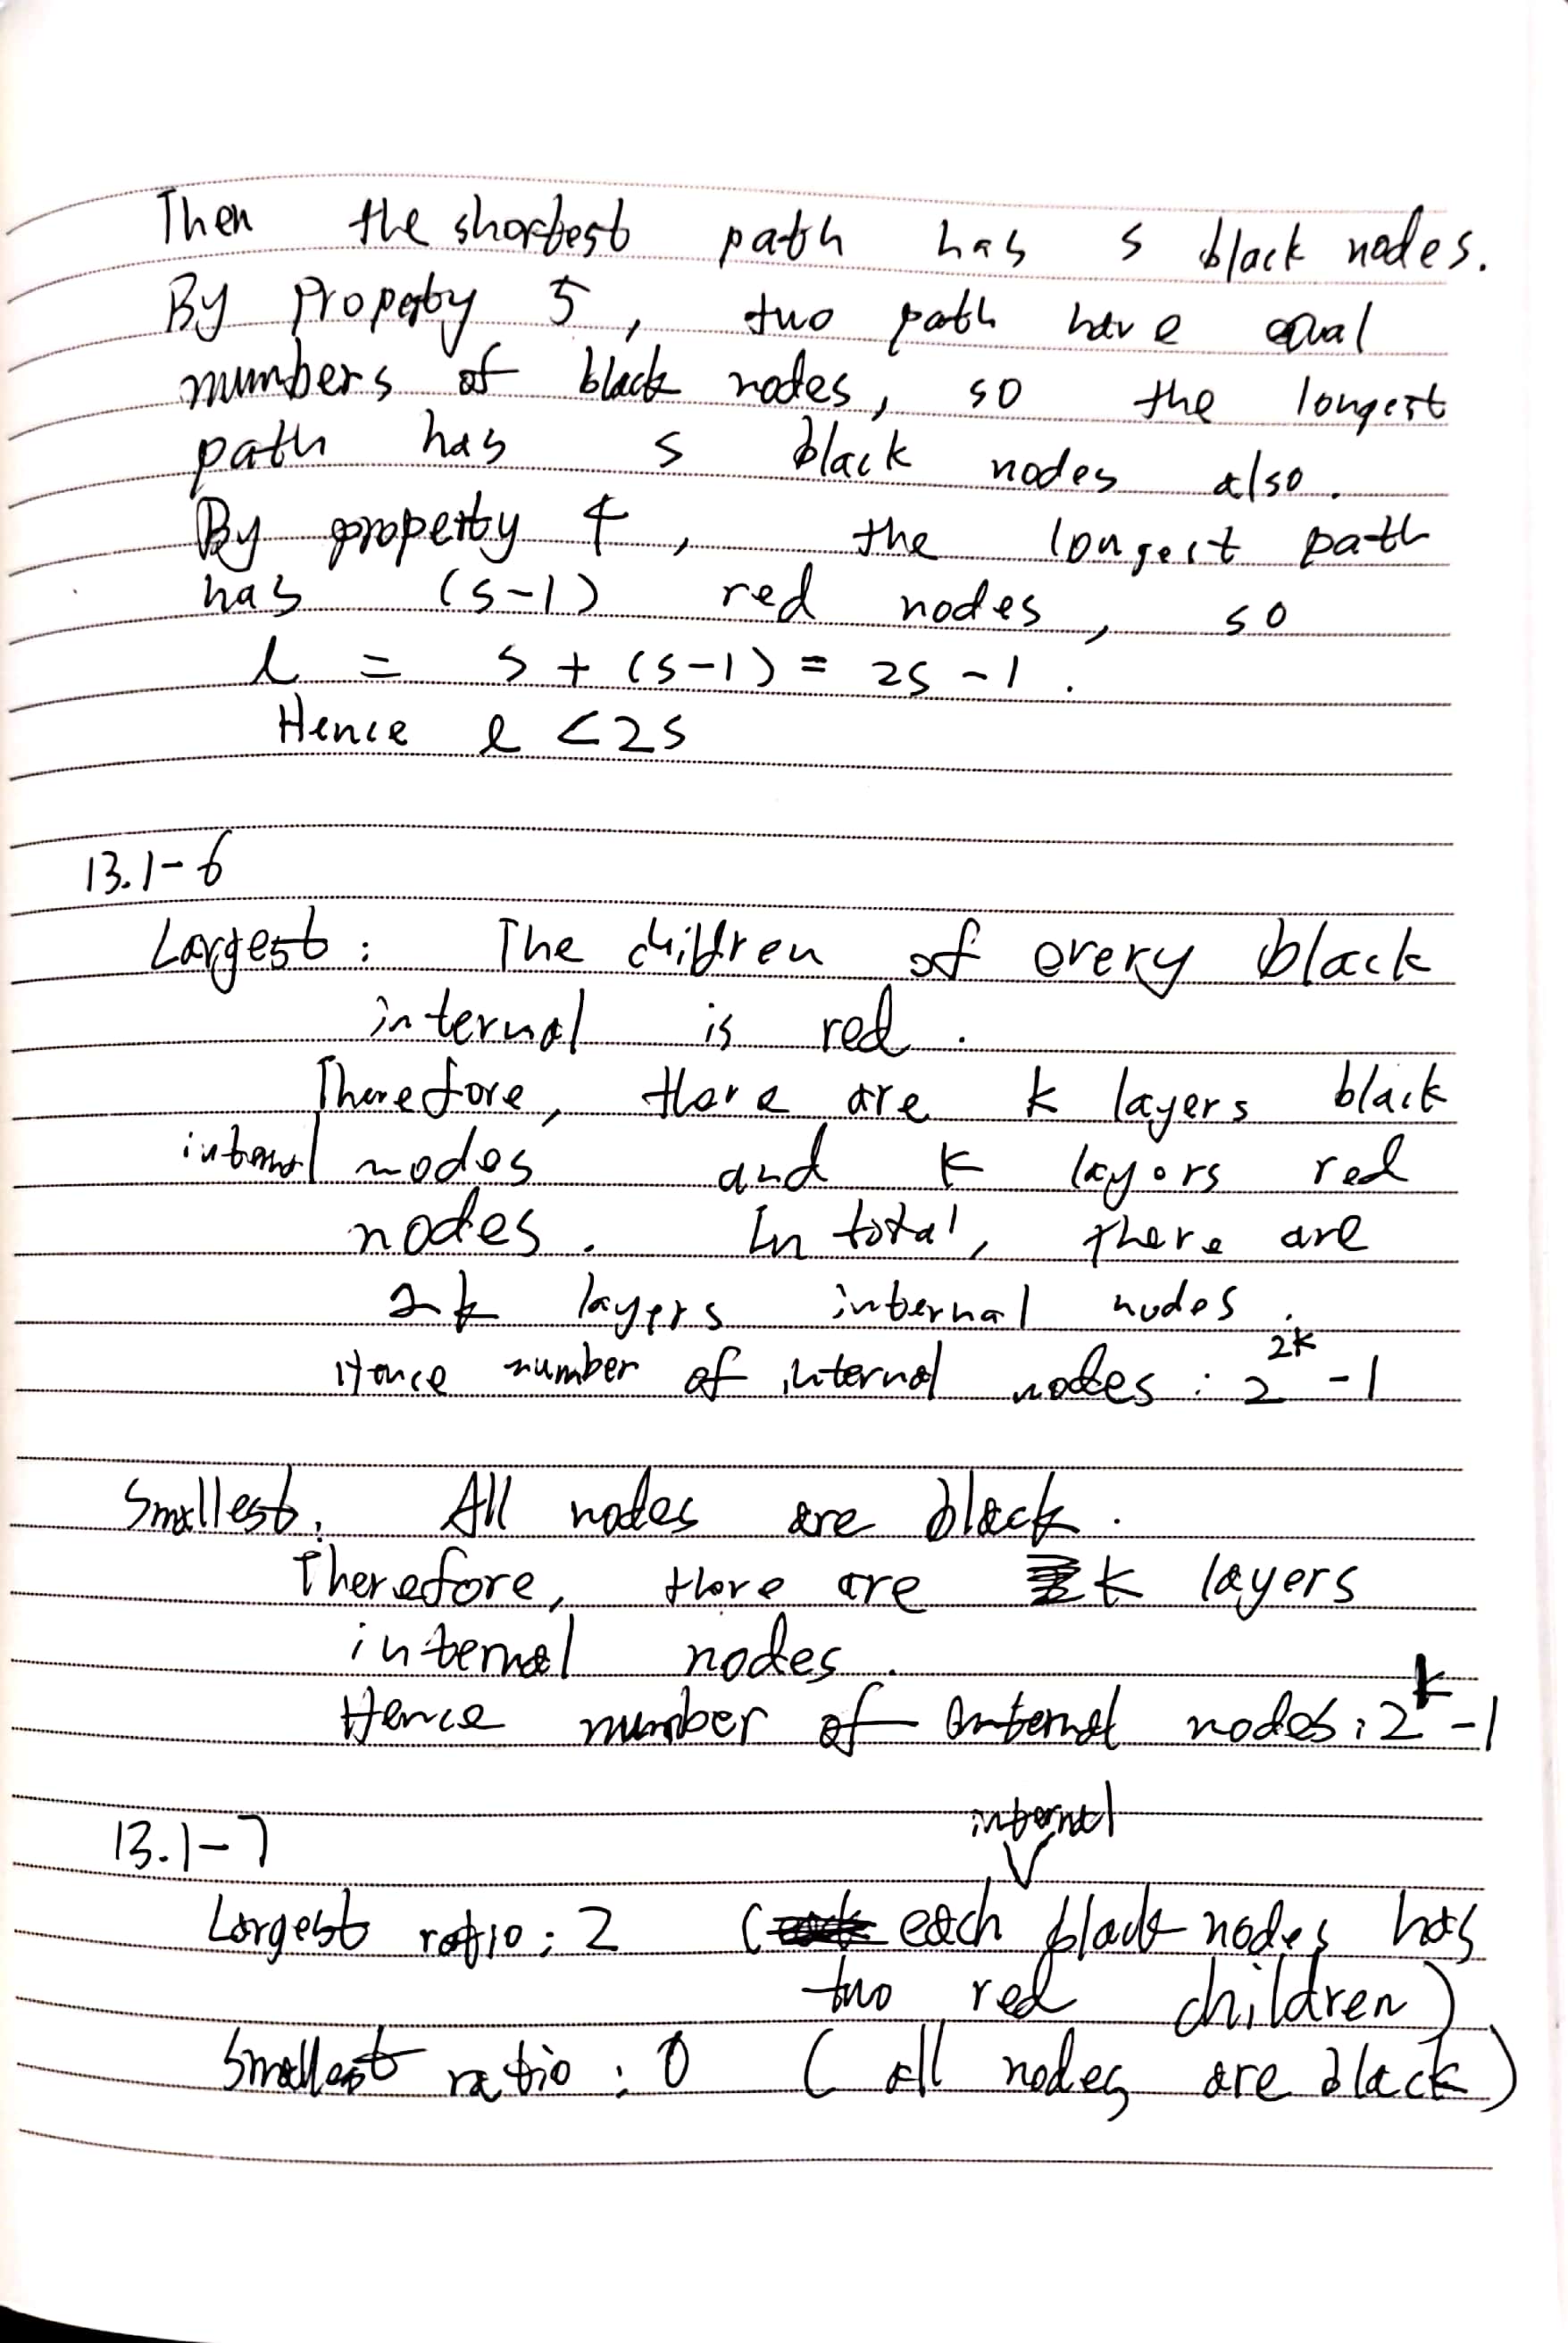 Then the shortest path has s black nodes.
By Property 5, two path have equal
numbers of black nodes, so the longest
path has s black nodes also.
By property 4, the longest path
has (s-1) red nodes, so
l = s + (s-1) = 2s - 1.
Hence l < 2s
13.1-6
Largest: The children of every black
internal is red.
Therefore, there are k layers black
internal nodes and k layers red
nodes. In total, there are
2k layers internal nodes.
Hence number of internal nodes: 2^2k - 1
Smallest: All nodes are black.
Therefore, there are k layers
internal nodes.
Hence number of internal nodes: 2^k - 1
13.1-7
internal
Largest ratio: 2 (each black nodes has
two red children)
Smallest ratio: 0 (all nodes are black)